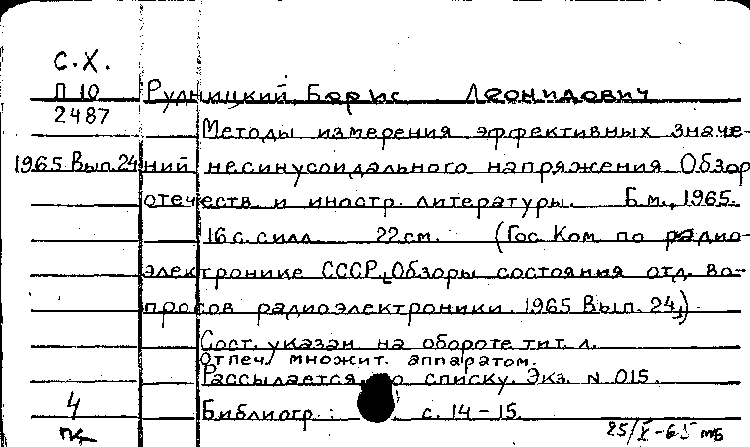 С.Х.
П 10 Рудницкий, Борис Леонидович
2487
Методы измерения эффективных значе-
1965 Вып. 24 ний несинусоидального напряжения. Обзор
отечеств. и иностр. литературы. Б.м., 1965.
16 с. с илл. 22 см. (Гос. Ком. по радио-
электронике СССР. Обзоры состояния отд. во-
просов радиоэлектроники. 1965 Вып. 24.)
Сост. указан на обороте тит. л.
Отпеч. множит. аппаратом.
Рассылается по списку. Экз. N 015.
4 Библиогр.: с. 14-15.
25/X-65